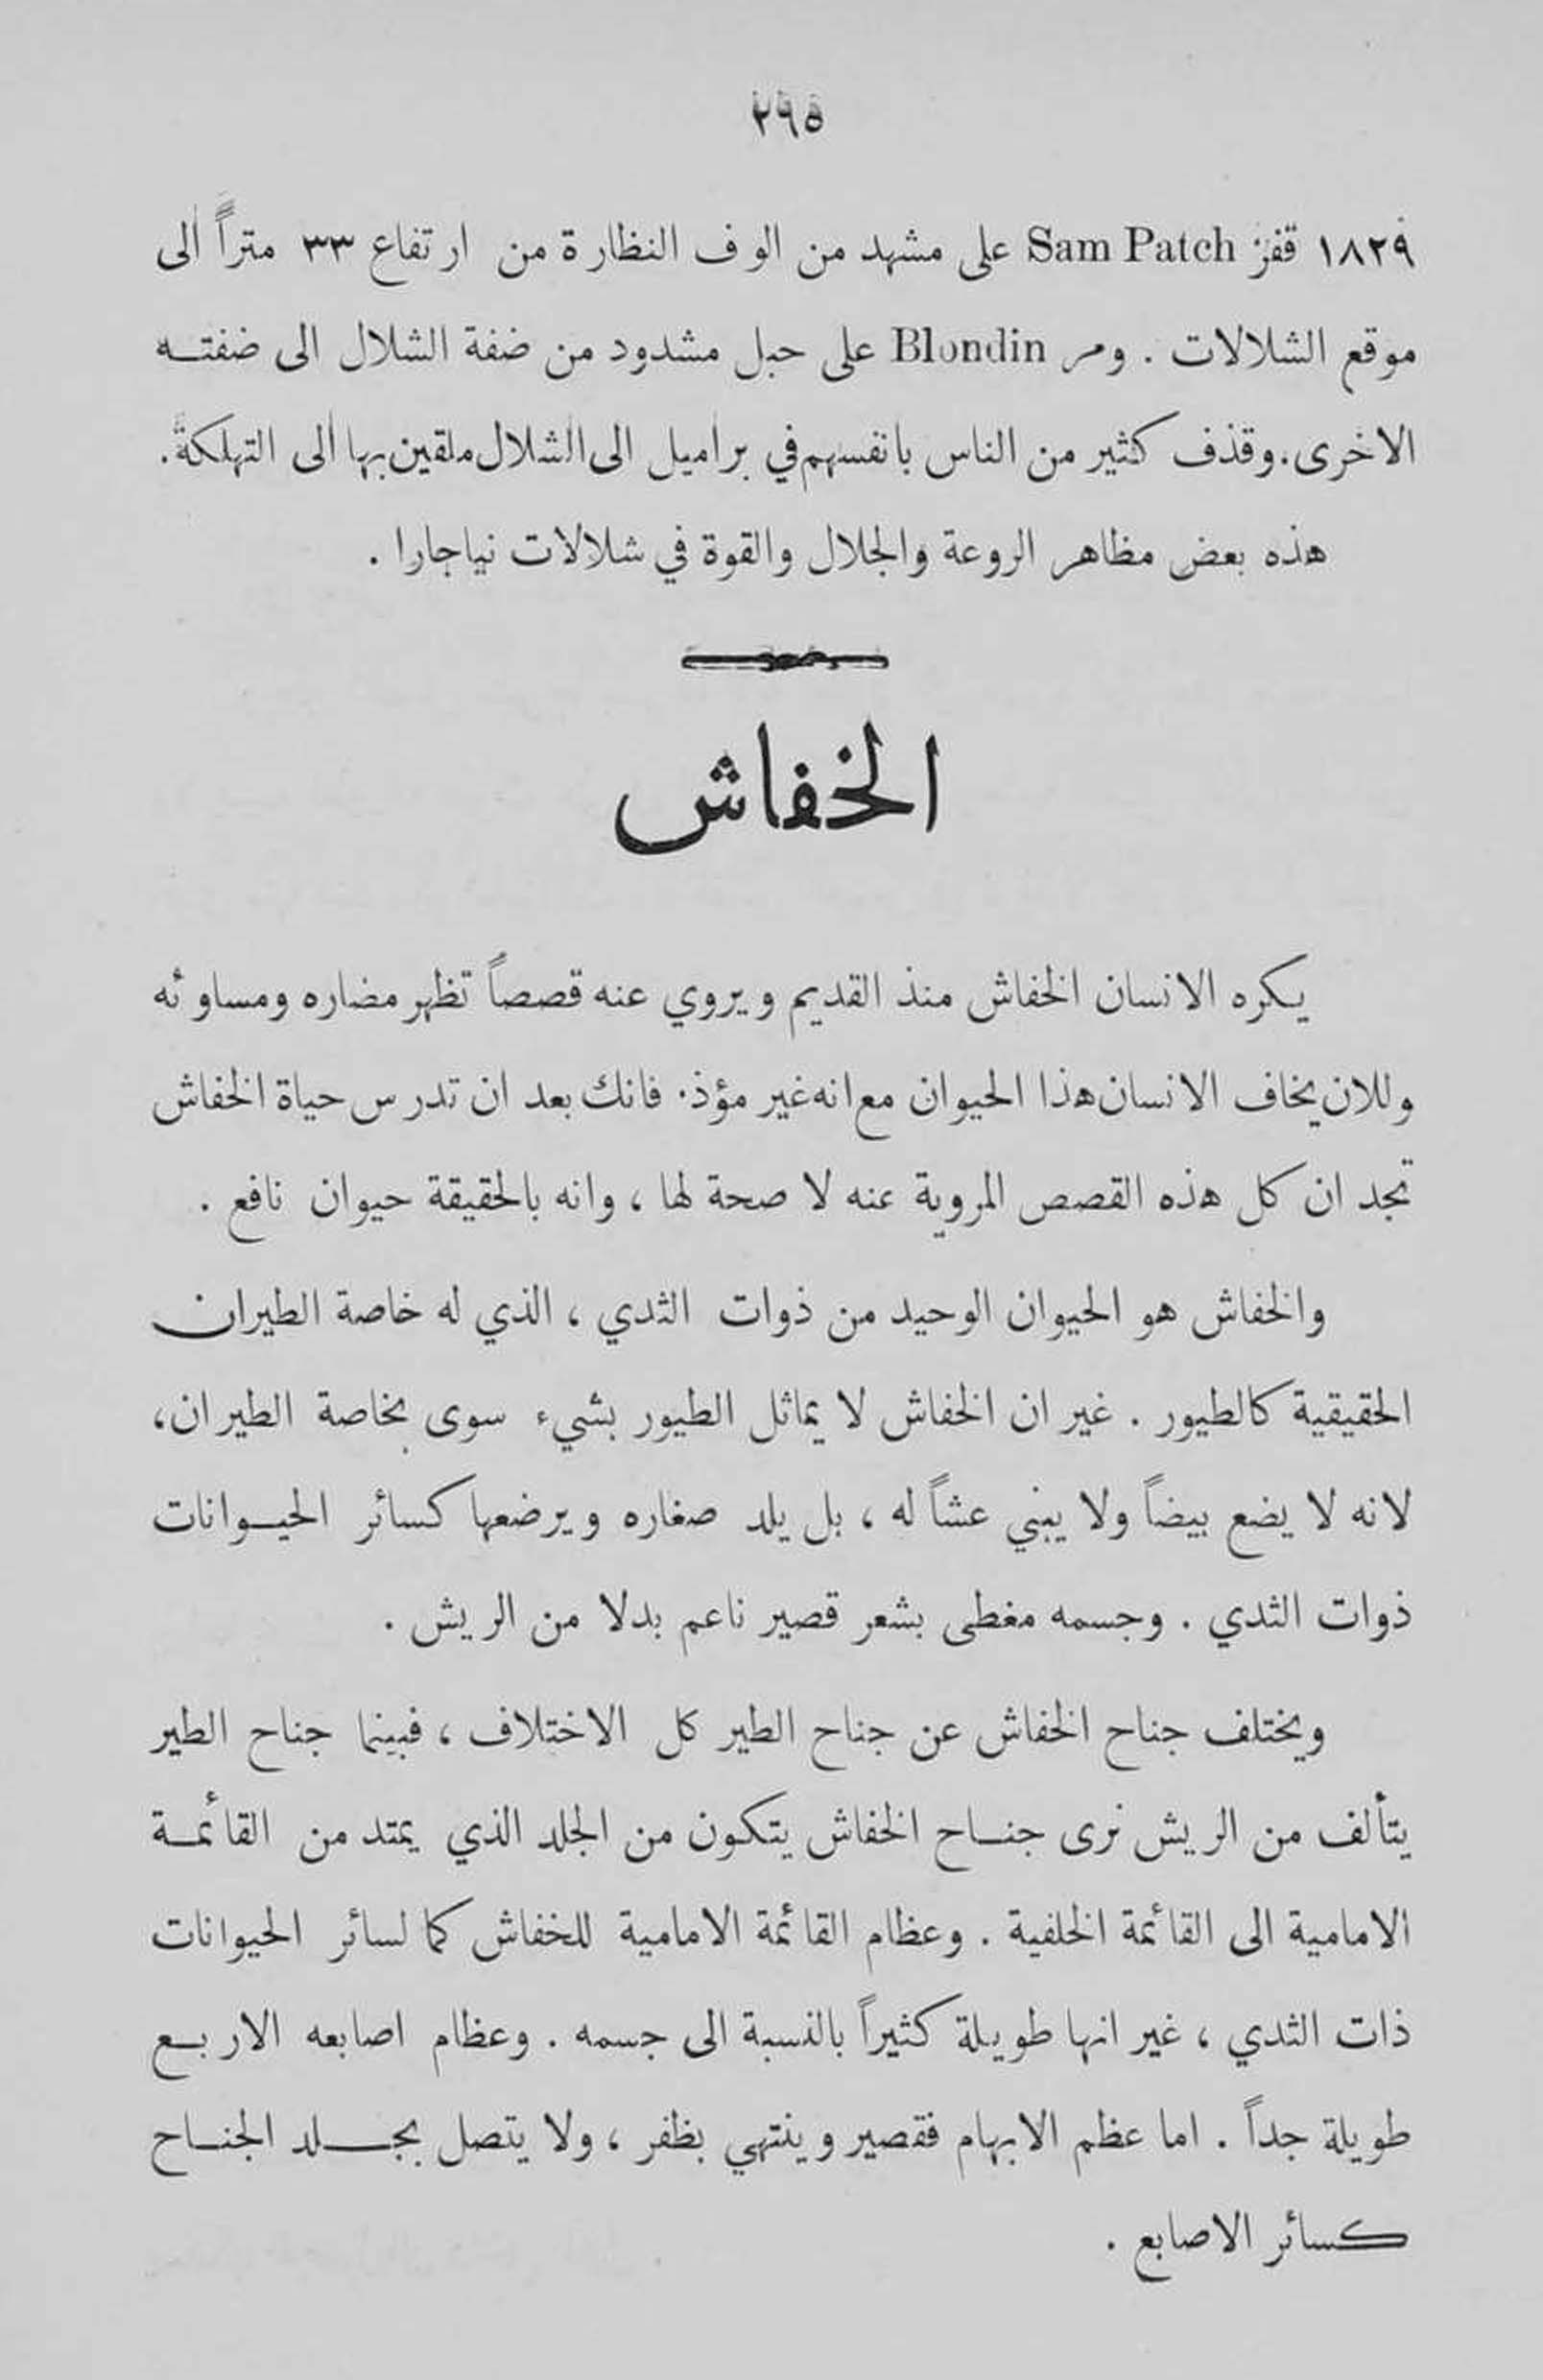 ٢٩٥
١٨٢٩ قفز Sam Patch على مشهد من الوف النظارة من ارتفاع ٣٣ متراً الى
موقع الشلالات . ومر Blondin على حبل مشدود من ضفة الشلال الى ضفتـه
الاخرى. وقذف كثير من الناس بانفسهم في براميل الى الشلال ملقين بها الى التهلكة.
هذه بعض مظاهر الروعة والجلال والقوة في شلالات نياجارا .
الخفاش
يكره الانسان الخفاش منذ القديم ويروي عنه قصصاً تظهر مضاره ومساوئه
وللان يخاف الانسان هذا الحيوان مع انه غير مؤذ. فانك بعد ان تدرس حياة الخفاش
تجد ان كل هذه القصص المروية عنه لا صحة لها ، وانه بالحقيقة حيوان نافع .
والخفاش هو الحيوان الوحيد من ذوات الثدي ، الذي له خاصة الطيران
الحقيقية كالطيور . غير ان الخفاش لا يماثل الطيور بشيء سوى بخاصة الطيران،
لانه لا يضع بيضاً ولا يبني عشاً له ، بل يلد صغاره ويرضعها كسائر الحيـوانات
ذوات الثدي . وجسمه مغطى بشعر قصير ناعم بدلا من الريش .
ويختلف جناح الخفاش عن جناح الطير كل الاختلاف ، فبينما جناح الطير
يتألف من الريش نرى جنـاح الخفاش يتكون من الجلد الذي يمتد من القائمـة
الامامية الى القائمة الخلفية . وعظام القائمة الامامية للخفاش كما لسائر الحيوانات
ذات الثدي ، غير انها طويلة كثيراً بالنسبة الى جسمه . وعظام اصابعه الاربـع
طويلة جداً . اما عظم الابهام فقصير وينتهي بظفر ، ولا يتصل بجـلد الجنـاح
كسائر الاصابع .